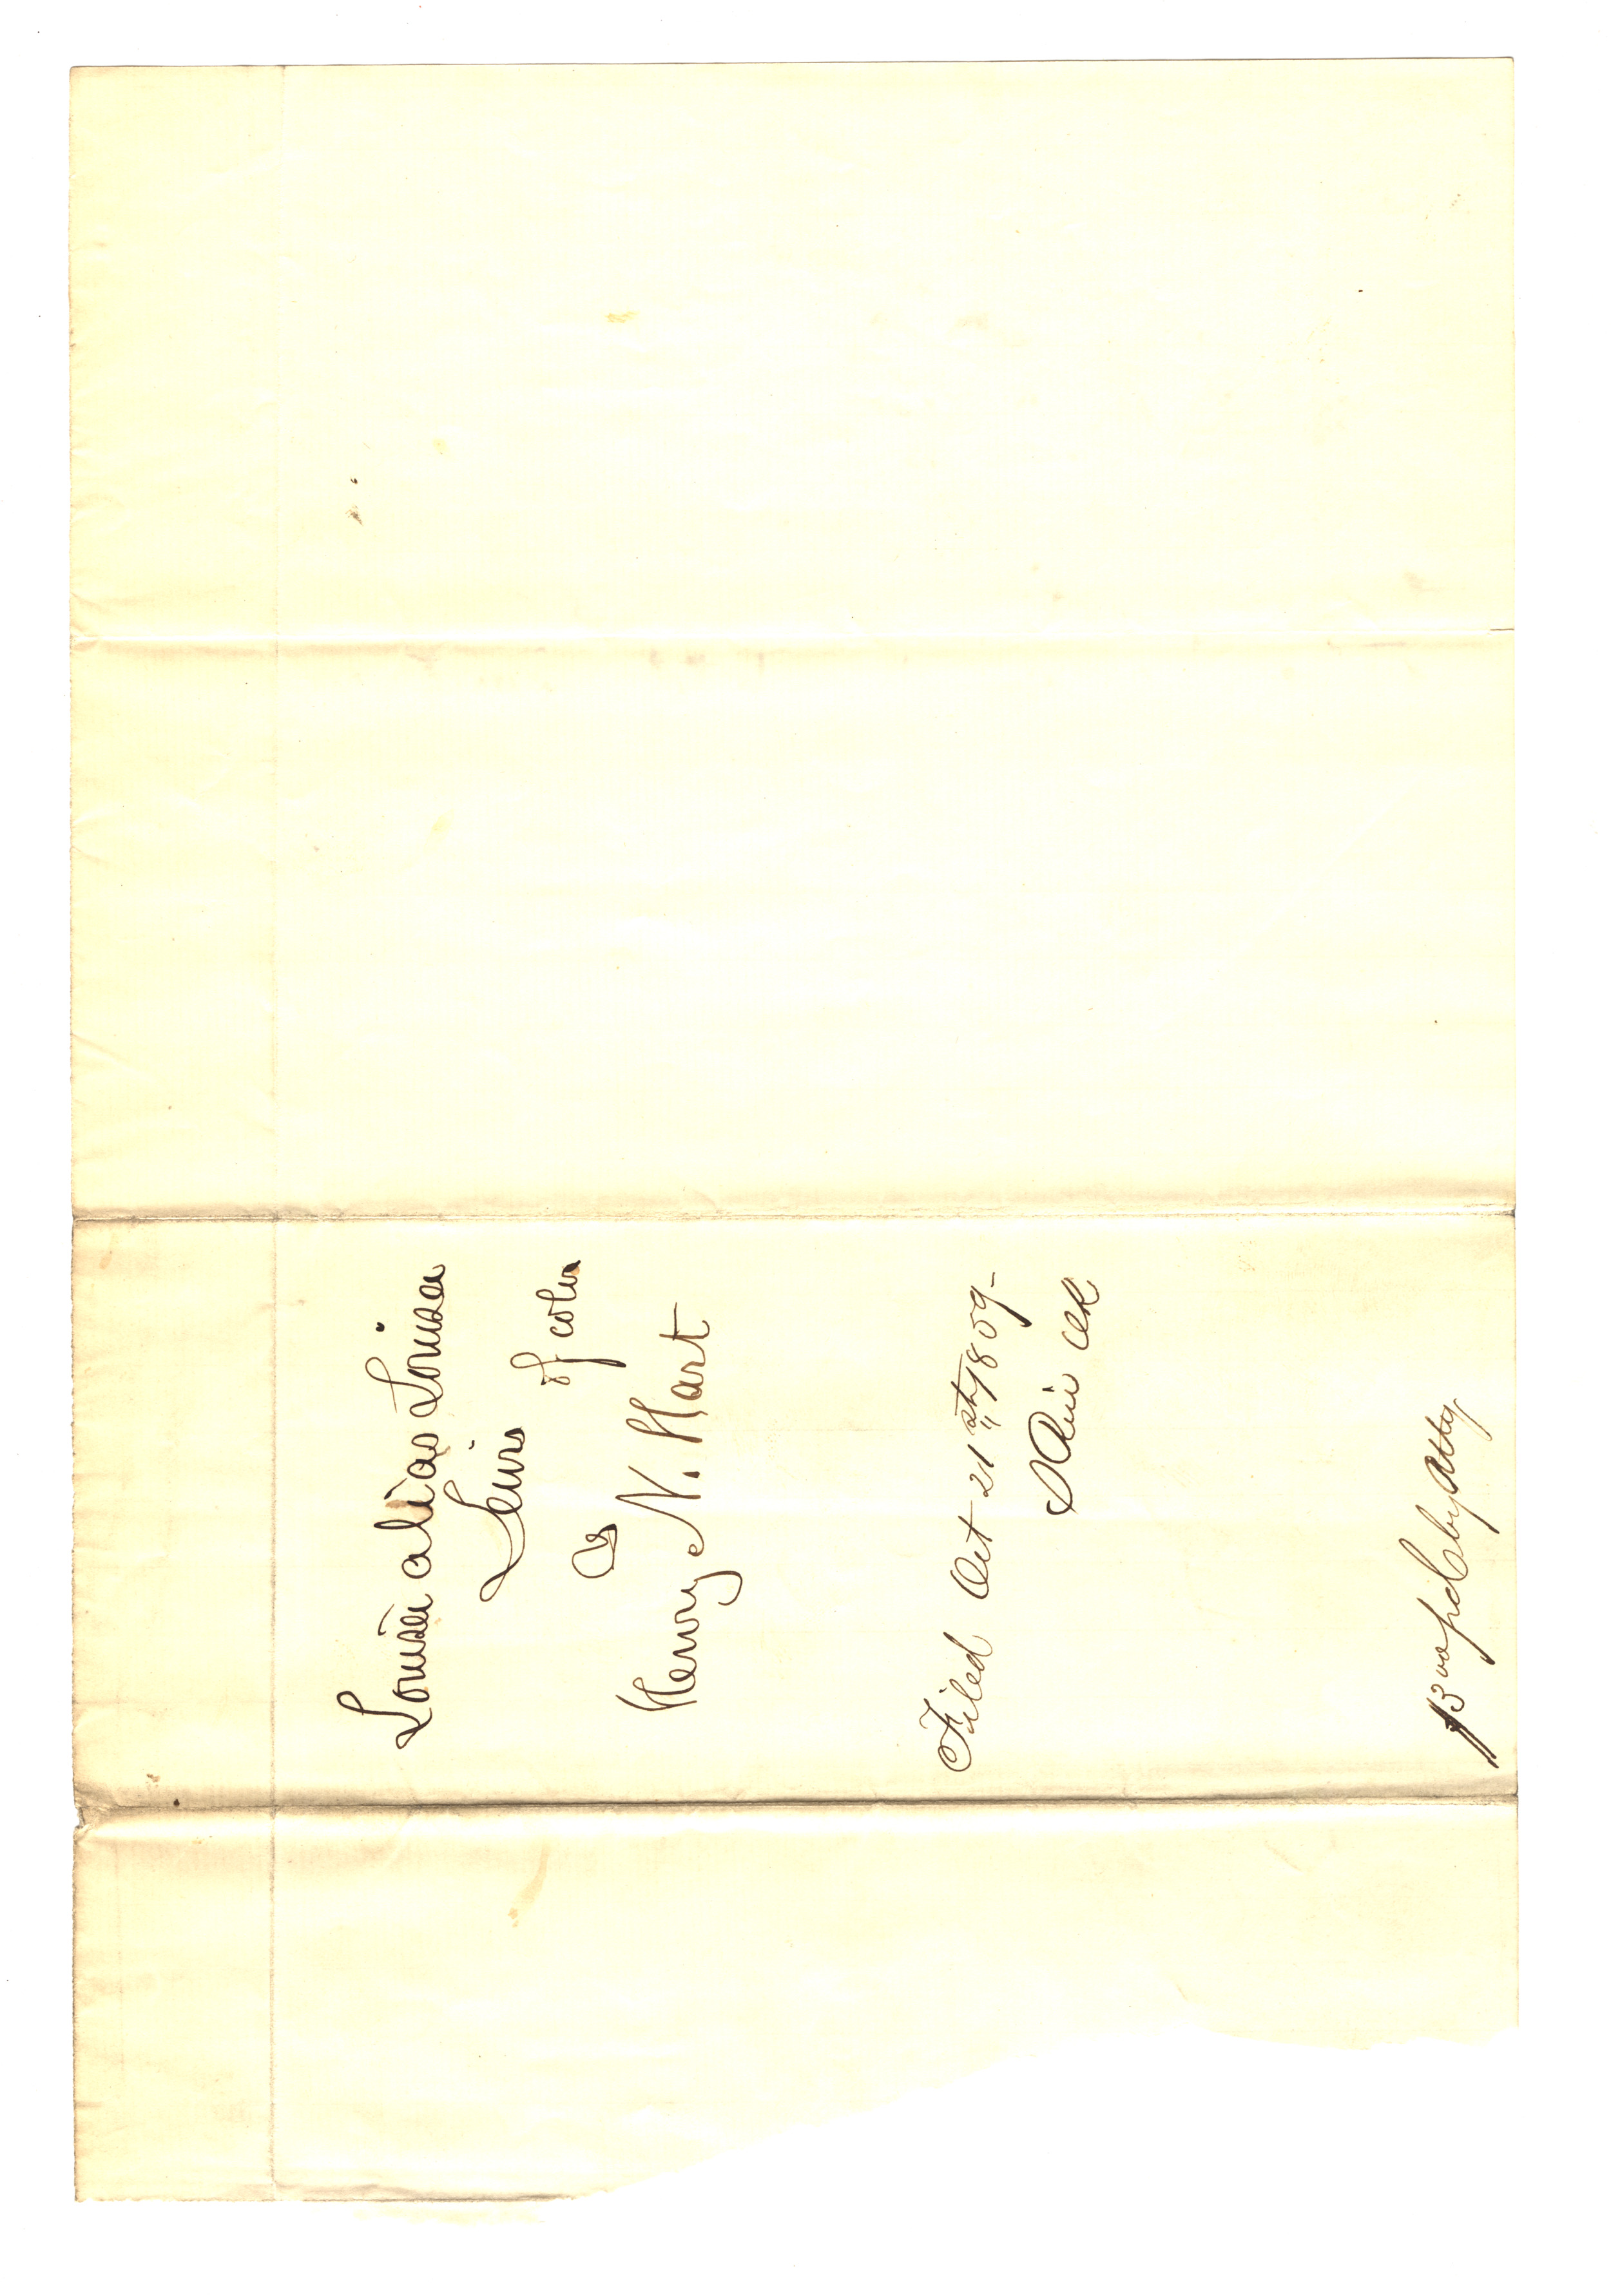 Louisa alias Louisa
Lewis
of color
vs
Henry N. Hart
Filed Oct 21st 1859-
Clk
$3 00 pd by Atty